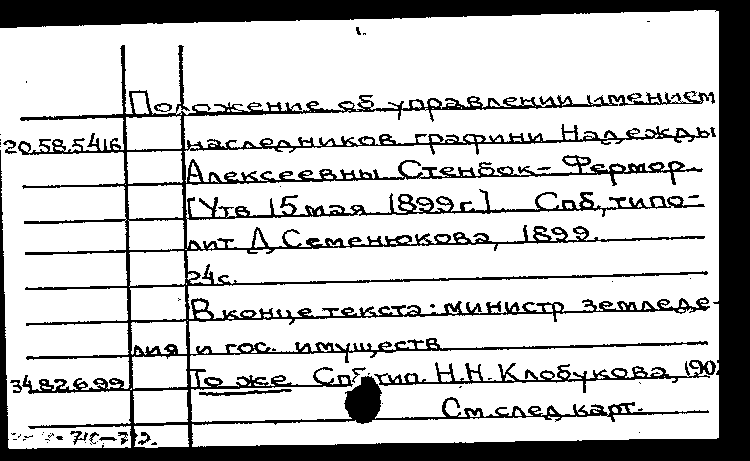 1.
Положение об управлении имением
20.58.5416 наследников графини Надежды
Алексеевны Стенбок-Фермор
[Утв 15 мая 1899 г.] Спб, типо-
лит Д Семенюкова, 1899.
24 с.
В конце текста: министр земледе-
лия и гос. имуществ
34.82.6.99 То же Спб тип. Н.Н. Клобукова, 190
См. след карт.
710-712.